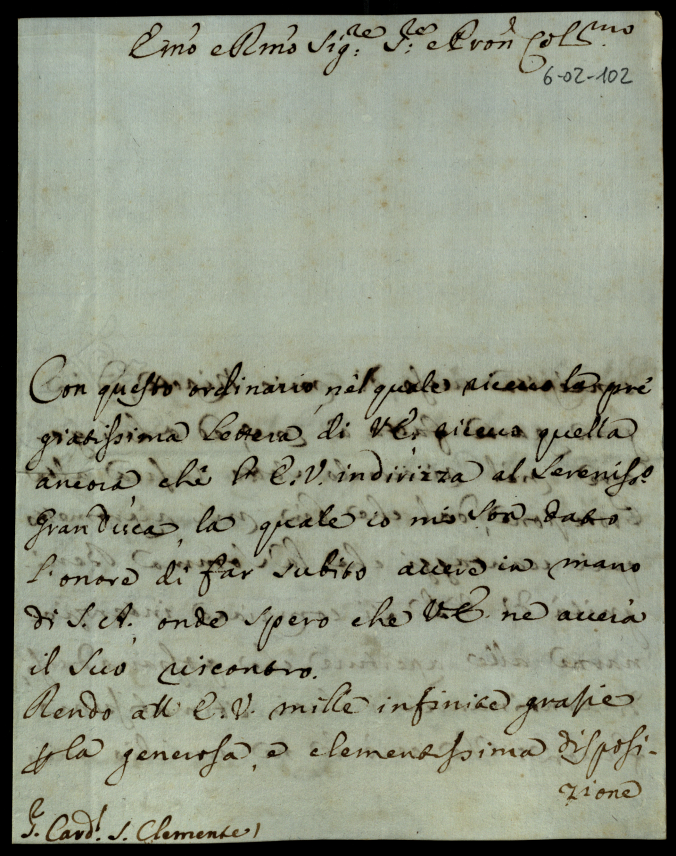 Emo e Rmo Sig:re S:re e Pron Col:mo
6-02-102
Con questo ordinario, nel quale riceuo la pre
giatissima Lettera di V.E. riceuo quella
ancora che l'E.V. indirizza al Sereniss:o
Granduca, la quale io mi son dato
l'onore di far subito auere in mano
di S.A. onde spero che V.E. ne auerà
il suo riscontro.
Rendo all'E.V. mille infinite grasie
p la generosa, e clementissima disposi-
zione
S.r Card.l S. Clemente